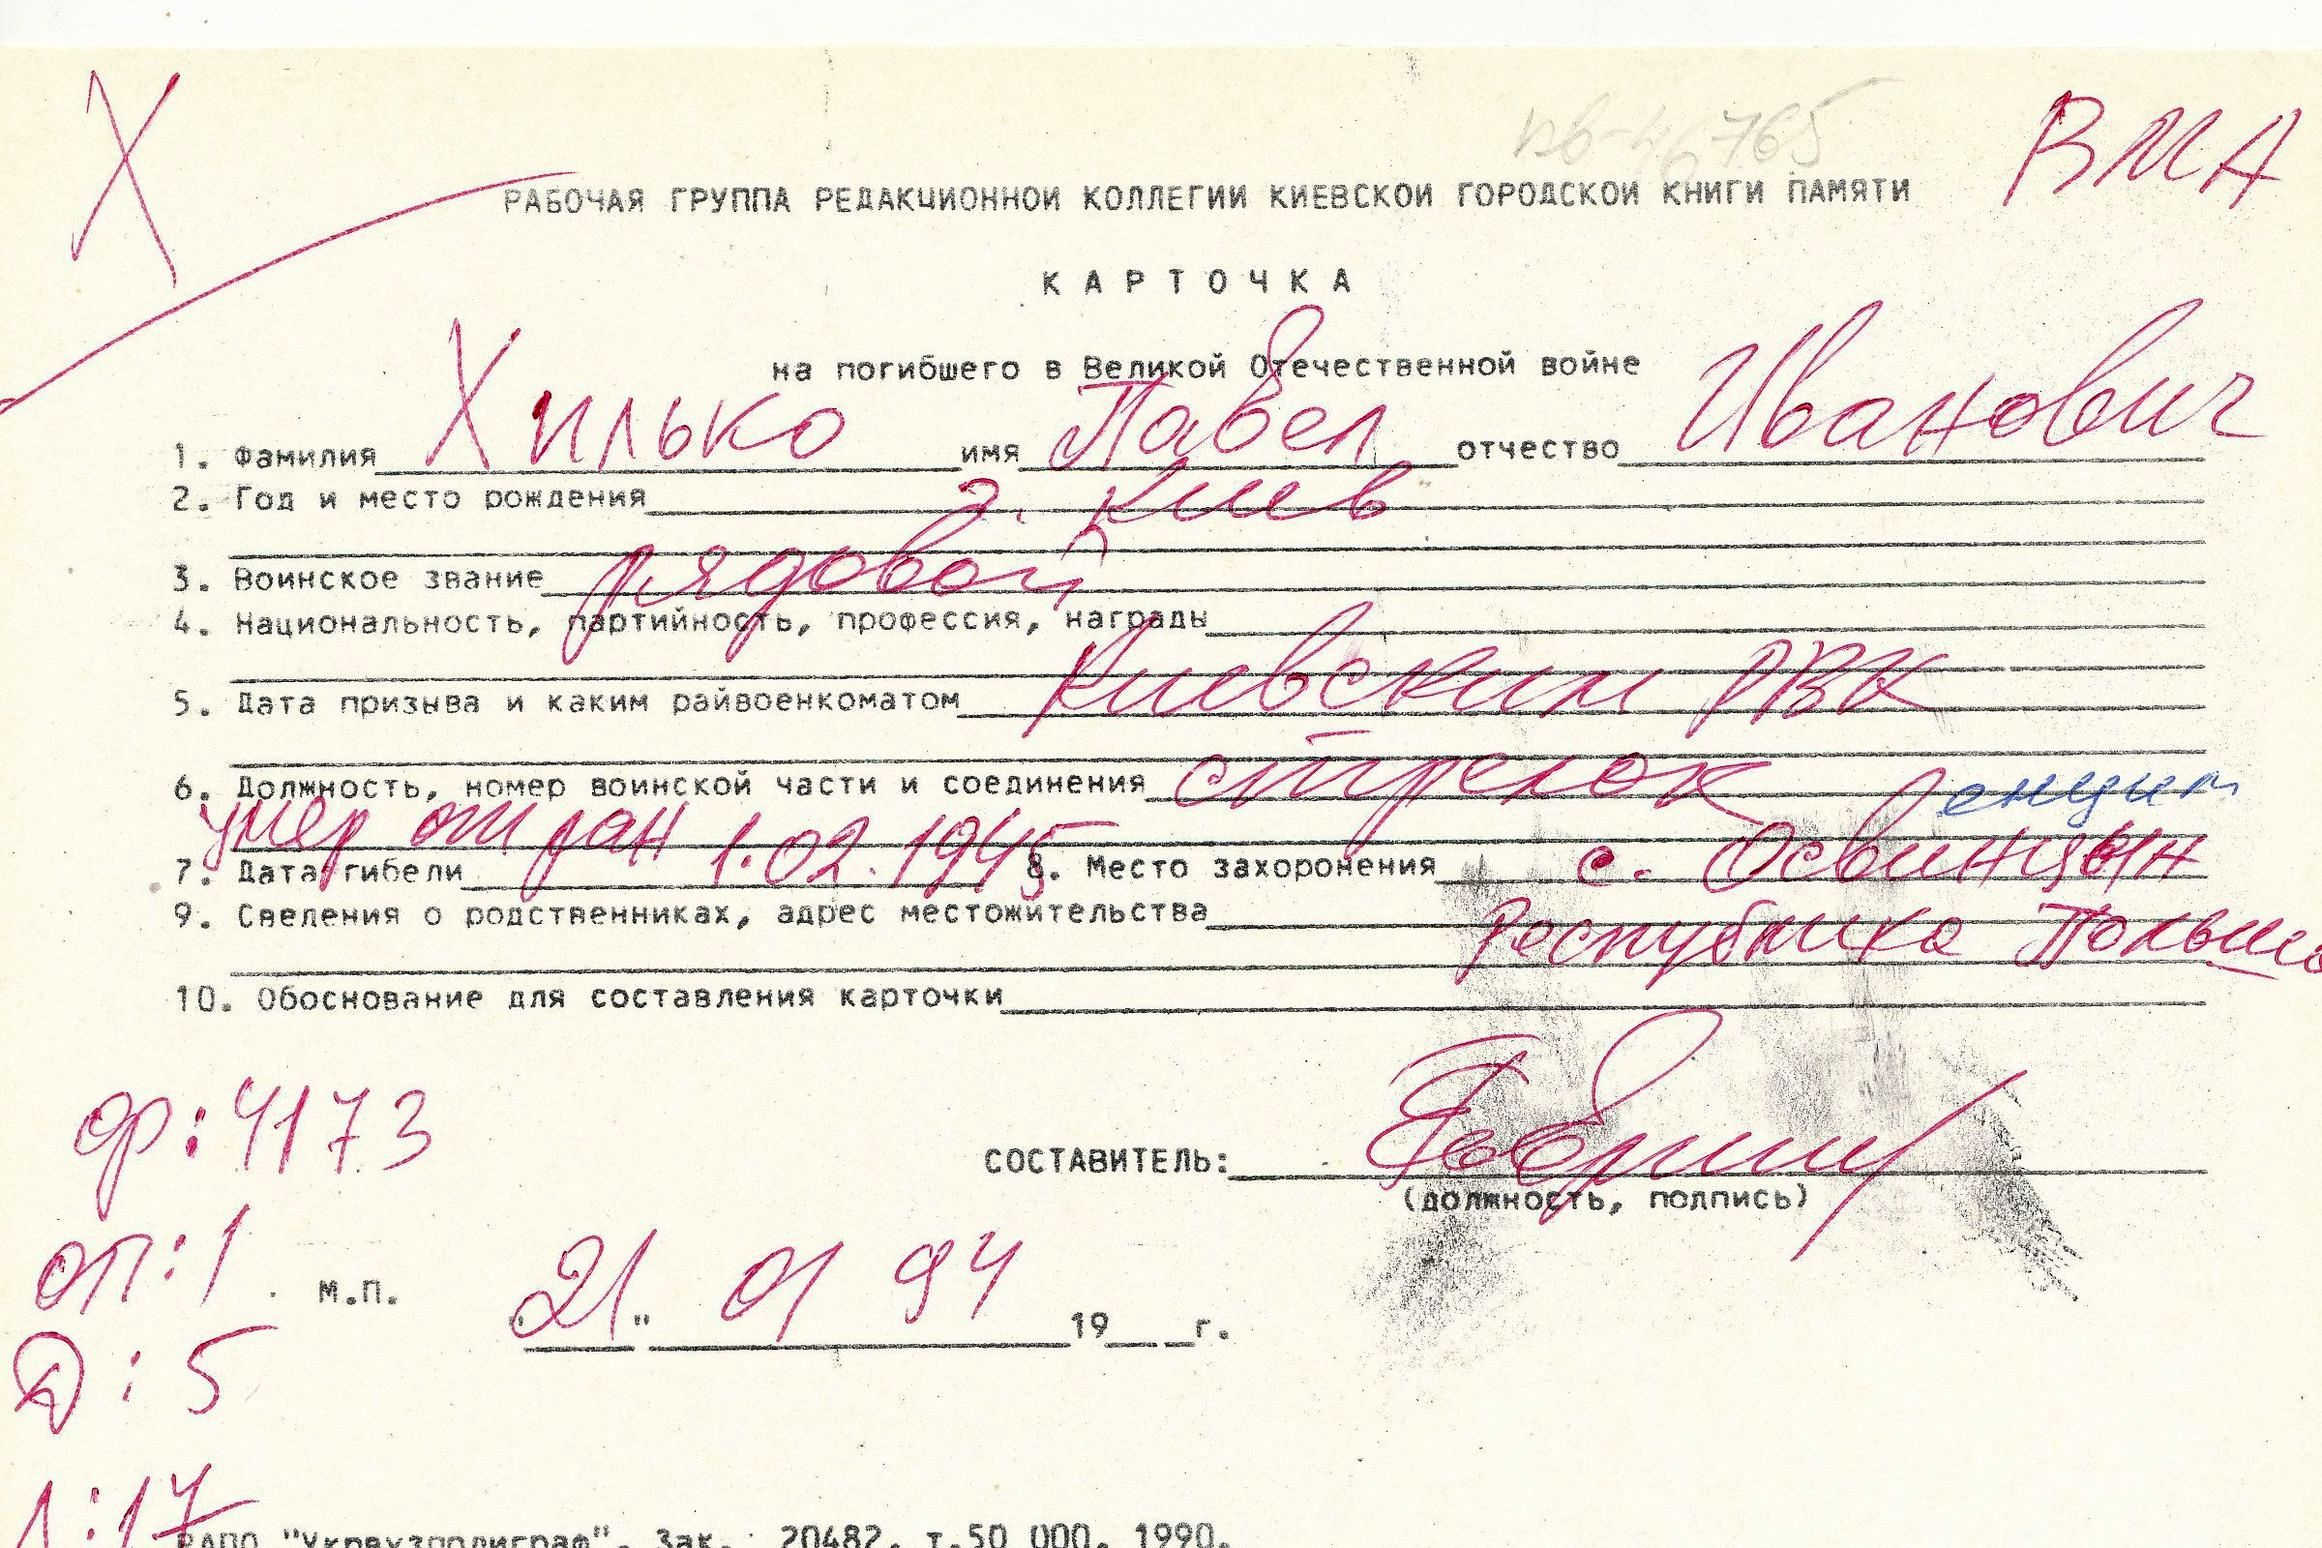 Х
ВМА
РАБОЧАЯ ГРУППА РЕДАКЦИОННОЙ КОЛЛЕГИИ КИЕВСКОЙ ГОРОДСКОЙ КНИГИ ПАМЯТИ
КАРТОЧКА
на погибшего в Великой Отечественной войне
1. Фамилия Хилько имя Павел отчество Иванович
2. Год и место рождения г. Киев
3. Воинское звание рядовой
4. Национальность, партийность, профессия, награды
5. Дата призыва и каким райвоенкоматом Киевским РВК
6. Должность, номер воинской части и соединения стрелок
умер от ран 1.02.1945
7. Дата гибели 8. Место захоронения с. Освинцын
9. Сведения о родственниках, адрес местожительства Республика Польша
10. Обоснование для составления карточки
ф: 4173
СОСТАВИТЕЛЬ:
(должность, полпись)
оп: 1
м.п. "21" 01 94 19 г.
Д: 5
л: 17
РАПО "Укрвузполиграф". Зак. 20482. т.50 000. 1990.